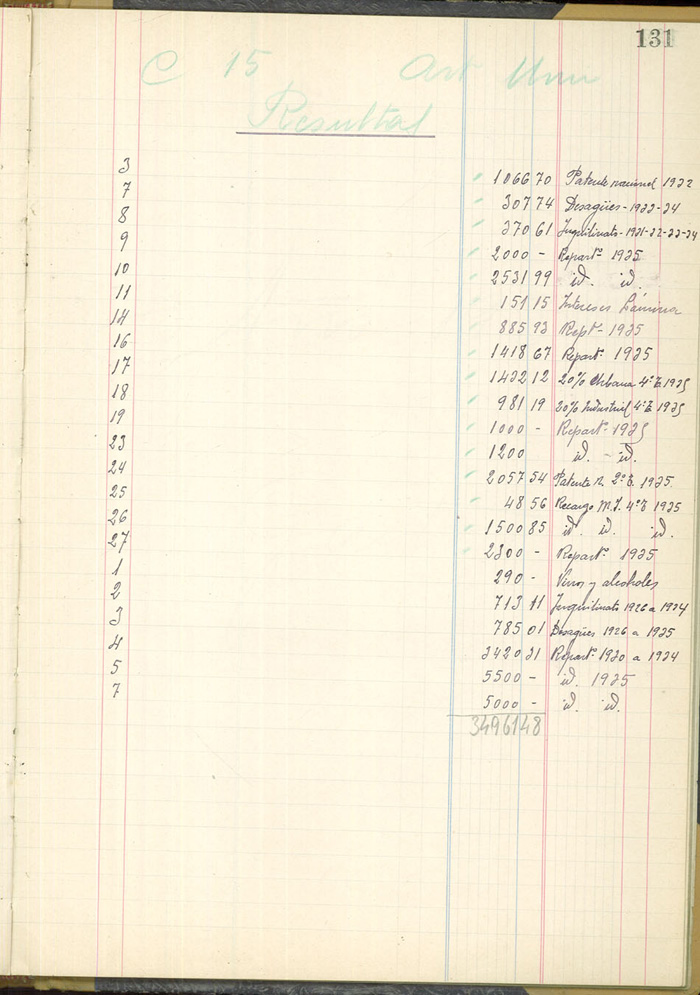 131
C 15 Art Unic
Resultas
3 1066 70 Patente nacional 1932
7 307 74 Desagües - 1933-34
8 370 61 Inquilinato - 1931-32-33-34
9 2000 - Repart° 1935
10 2531 99 id. id.
11 151 15 Intereses Lámina
14 885 93 Rept° 1935
16 1418 67 Repart° 1935
17 1432 12 20% Urbana 4° T. 1935
18 981 19 20% Industrial 4° T. 1935
19 1000 - Repart° 1935
23 1200 id. - id.
24 2057 54 Patente N. 2° T. 1935
25 48 56 Recargo M. I. 4° T 1935
26 1500 85 id. id. id.
27 2300 - Repart° 1935
1 290 - Vinos y alcoholes
2 713 11 Inquilinato 1926 a 1934
3 785 01 Desagües 1926 a 1935
4 3420 31 Repart° 1930 a 1934
5 5500 - id. 1935
7 5000 - id. id.
34961 48